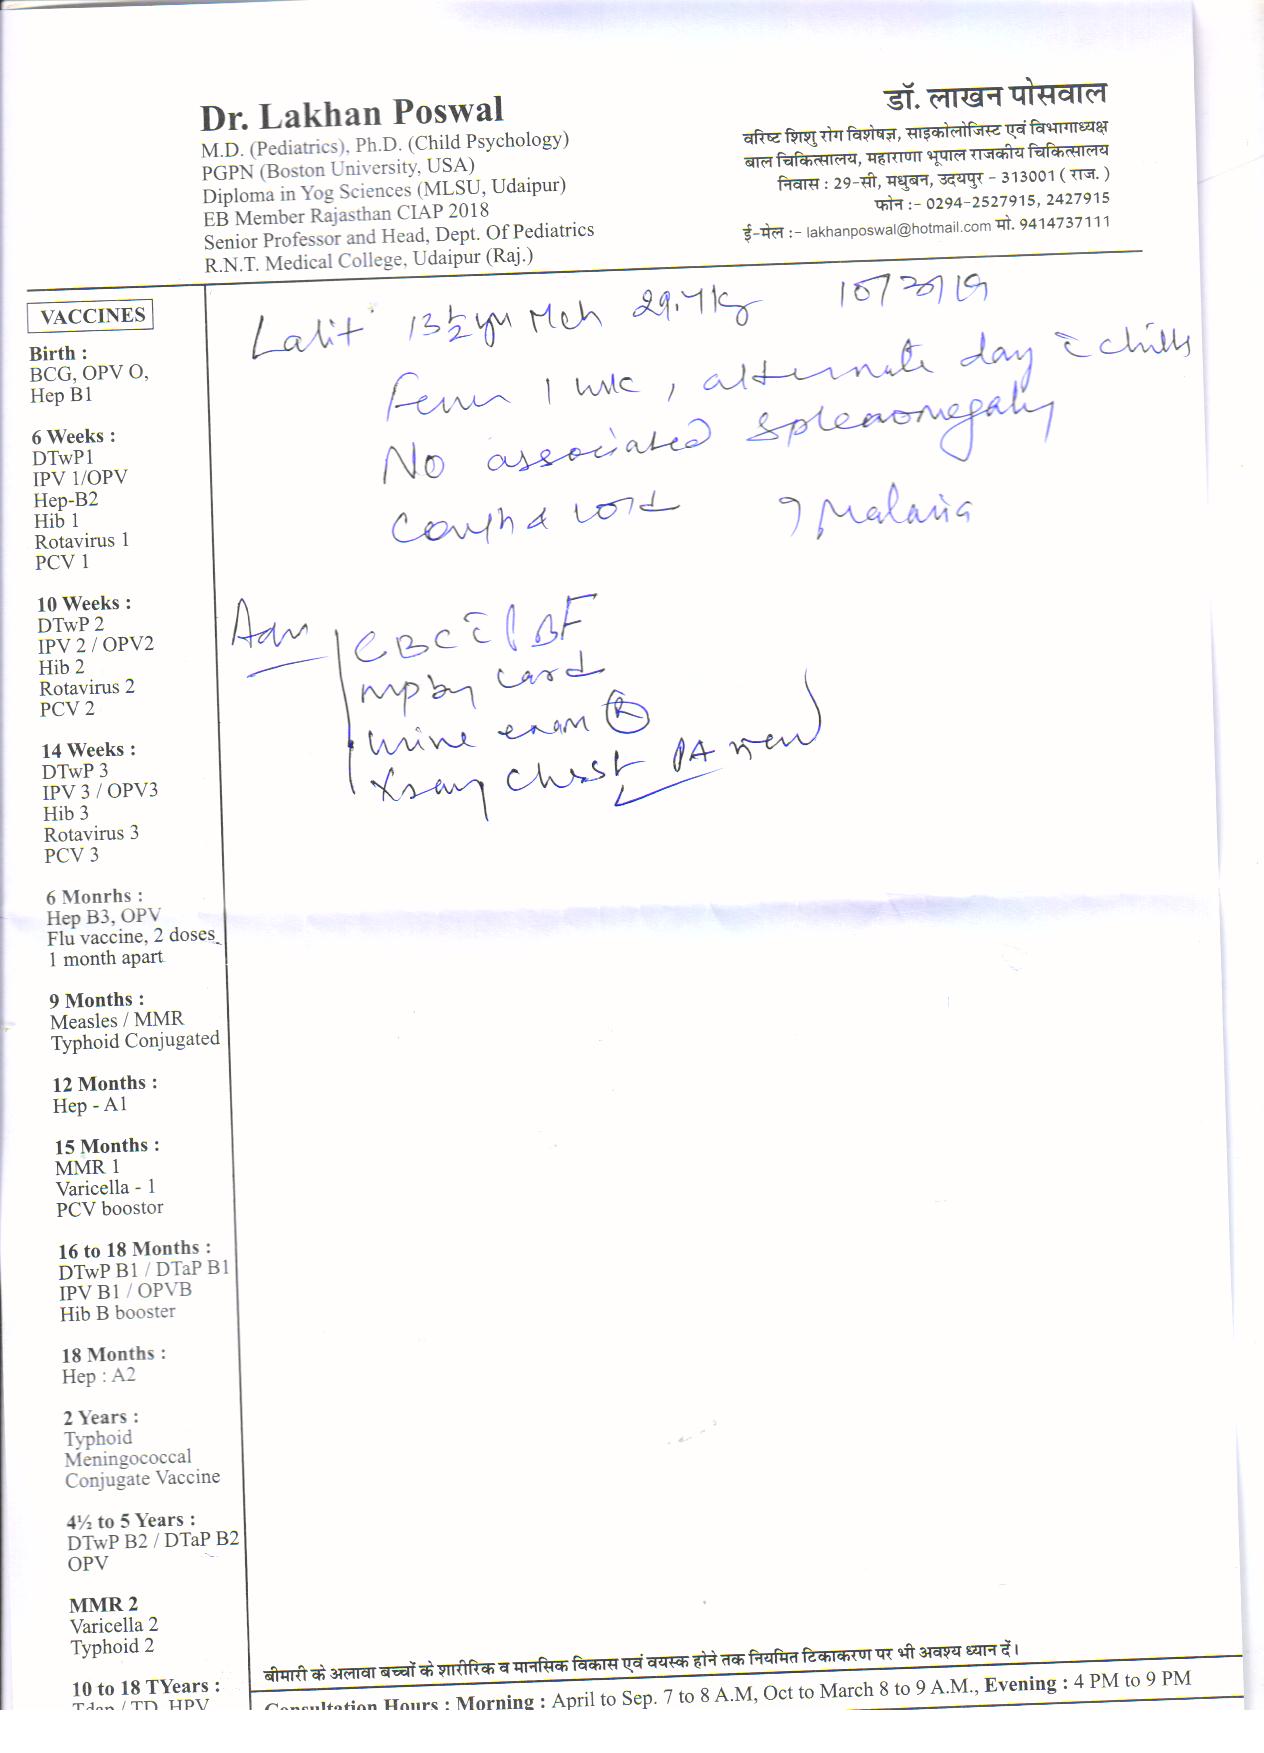 Dr. Lakhan Poswal
M.D. (Pediatrics), Ph.D. (Child Psychology)
PGPN (Boston University, USA)
Diploma in Yog Sciences (MLSU, Udaipur)
EB Member Rajasthan CIAP 2018
Senior Professor and Head, Dept. Of Pediatrics
R.N.T. Medical College, Udaipur (Raj.)
डॉ. लाखन पोसवाल
वरिष्ट शिशु रोग विशेषज्ञ, साइकोलोजिस्ट एवं विभागाध्यक्ष
बाल चिकित्सालय, महाराणा भूपाल राजकीय चिकित्सालय
निवास : 29-सी, मधुबन, उदयपुर - 313001 ( राज. )
फोन :- 0294-2527915, 2427915
ई-मेल :- lakhanposwal@hotmail.com मो. 9414737111
VACCINES
Birth :
BCG, OPV O,
Hep B1
6 Weeks :
DTwP1
IPV 1/OPV
Hep-B2
Hib 1
Rotavirus 1
PCV 1
10 Weeks :
DTwP 2
IPV 2 / OPV2
Hib 2
Rotavirus 2
PCV 2
14 Weeks :
DTwP 3
IPV 3 / OPV3
Hib 3
Rotavirus 3
PCV 3
6 Monrhs :
Hep B3, OPV
Flu vaccine, 2 doses
1 month apart
9 Months :
Measles / MMR
Typhoid Conjugated
12 Months :
Hep - A1
15 Months :
MMR 1
Varicella - 1
PCV boostor
16 to 18 Months :
DTwP B1 / DTaP B1
IPV B1 / OPVB
Hib B booster
18 Months :
Hep : A2
2 Years :
Typhoid
Meningococcal
Conjugate Vaccine
4½ to 5 Years :
DTwP B2 / DTaP B2
OPV
MMR 2
Varicella 2
Typhoid 2
10 to 18 TYears :
Tdap / TD, HPV
Lalit 13½ yr Mch 29.4 kg
Fever 1 wk, alternate day c̄ chills
No associated Spleenomegaly
Cough & cold ? Malaria
Adv CBC c̄ PBF
mp by card
urine exam (R)
Xray Chest PA view
बीमारी के अलावा बच्चों के शारीरिक व मानसिक विकास एवं वयस्क होने तक नियमित टिकाकरण पर भी अवश्य ध्यान दें।
Consultation Hours : Morning : April to Sep. 7 to 8 A.M, Oct to March 8 to 9 A.M., Evening : 4 PM to 9 PM